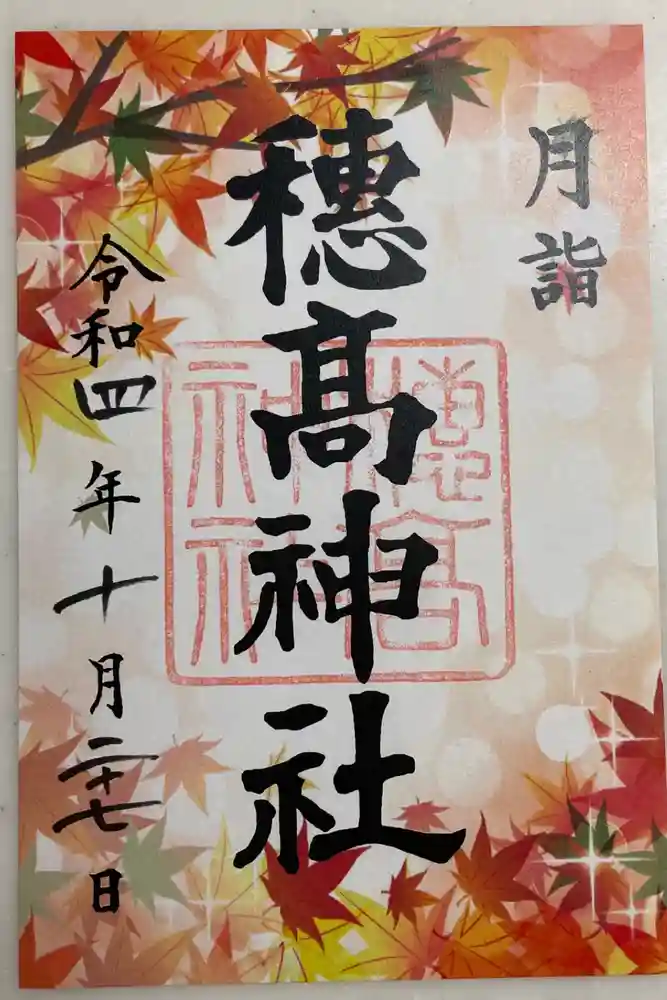 月詣
穂髙神社
令和四年十月二十七日
穂髙
神社